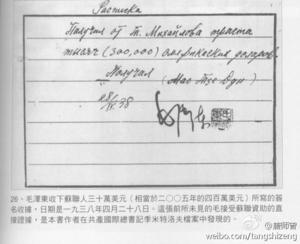 Расписка
Получил от т. Михайлова триста
тысяч (300,000) американских долларов.
Получил
(Мао Цзе Дун)
28/IV.38
28、毛澤東收下蘇聯人三十萬美元（相當於二○○五年的四百萬美元）所寫的簽
名收據，日期是一九三八年四月二十八日。這張前所未見的毛接受蘇聯資助的直
接證據，是本書作者在共產國際總書記季米特洛夫檔案中發現的。
@新師曾
http://weibo.com/tangshizeng